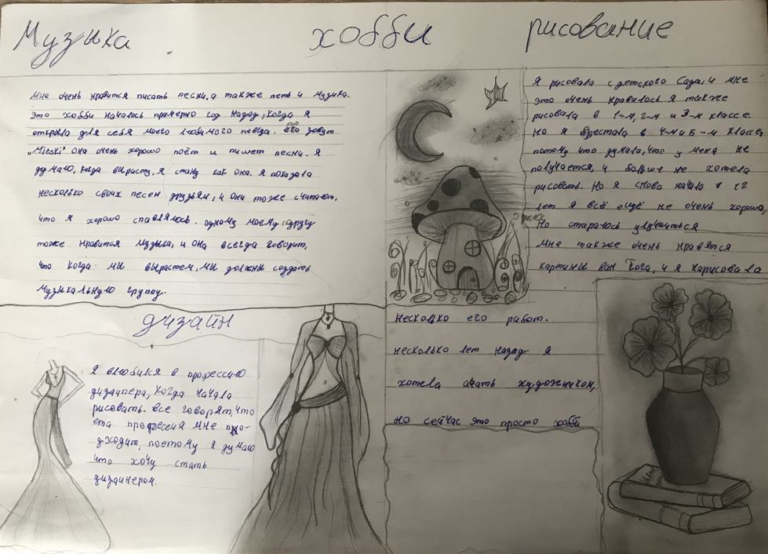 Музыка
хобби
рисование
Мне очень нравится писать песни, а также петь и музыка.
Это хобби началось примерно год назад, когда я
открыла для себя моего любимого певца. его зовут
"Mitski" она очень хорошо поёт и пишет песни. Я
думаю, когда вырасту, я стану как она. Я показала
несколько своих песен друзьям, и они тоже считают,
что я хорошо справляюсь. одному моему другу
тоже нравится музыка, и она всегда говорит,
что когда мы вырастем, мы должны создать
музыкальную группу.
Я рисовала с детского сада, и мне
это очень нравилось я также
рисовала в 1-м, 2-м и 3-м классе.
Но я перестала в 4-м и 5-м классе,
потому что думала, что у меня не
получается, и больше не хотела
рисовать. Но я снова начала в 12
лет я всё ещё не очень хороша,
Но стараюсь улучшиться.
Мне также очень нравятся
картины Ван Гога, и я нарисовала
несколько его работ.
несколько лет назад я
хотела стать художником,
но сейчас это просто хобби
дизайн
Я влюбился в профессию
дизайнера, когда начала
рисовать. все говорят, что
эта профессия мне по-
дходит, поэтому я думаю
что хочу стать
дизайнером.